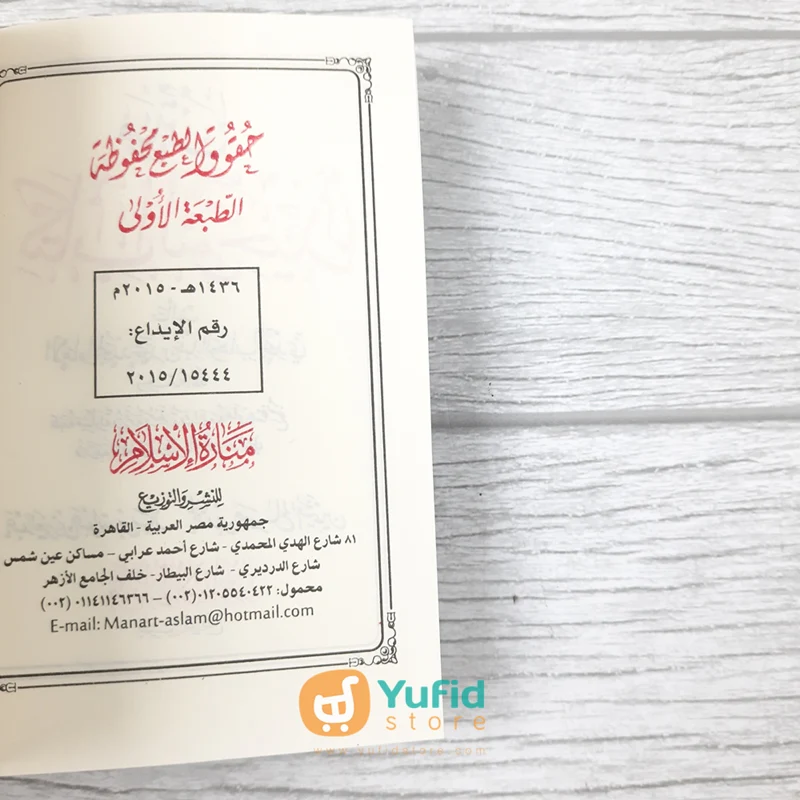 حُقُوقُ الطَّبْعِ مَحْفُوظَة
الطَّبْعَة الأُوْلَى
١٤٣٦هـ - ٢٠١٥م
رقم الإيداع:
٢٠١٥/١٥٤٤٤
مَنَارَةُ الإِسْلَامِ
للنشر والتوزيع
جمهورية مصر العربية - القاهرة
٨١ شارع الهدي المحمدي - شارع أحمد عرابي - مساكن عين شمس
شارع الدرديري - شارع البيطار - خلف الجامع الأزهر
محمول: ٠١٢٠٥٥٤٠٤٢٢ (٠٠٢) – ٠١١٤١١٤٦٣٦٦ (٠٠٢)
E-mail: Manart-aslam@hotmail.com
Yufid
store